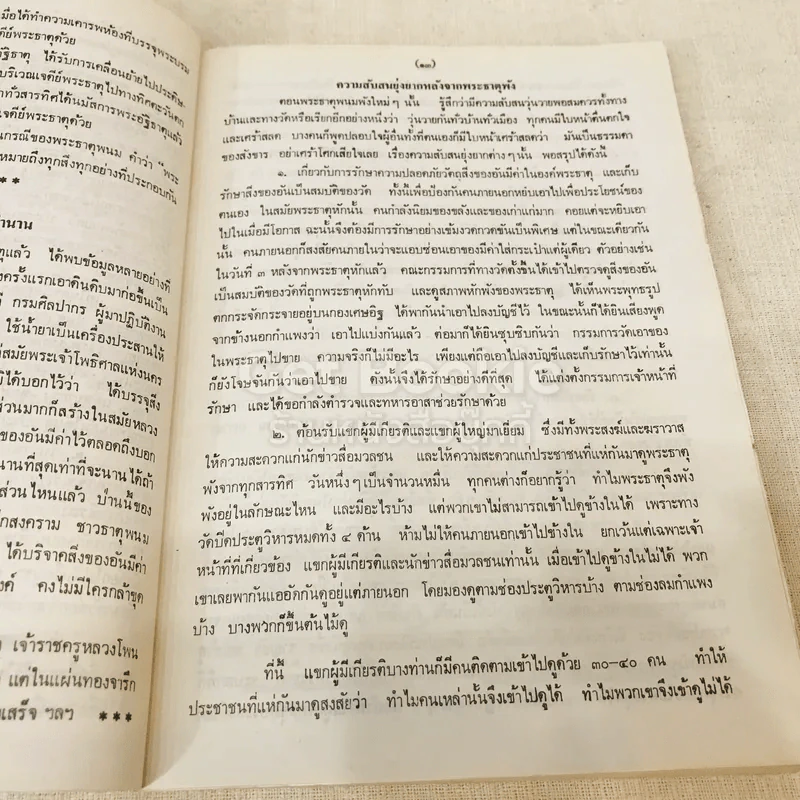 มื่อได้ทำความเคารพห้องที่บรรจุพระบรม
ดีย์พระธาตุด้วย
ฐิธาตุ ได้รับการเคลื่อนย้ายไปประดิษ-
บริเวณเจดีย์พระธาตุไปทางทิศตะวันตก
าทั่วสารทิศได้นมัสการพระอัฐิธาตุแล้ว
ดีย์พระธาตุด้วย
นกรณีของพระธาตุพนม คำว่า "พระ
หมายถึงทุกสิ่งทุกอย่างที่ประกอบกัน
* *
ำนาน
ตุแล้ว ได้พบข้อมูลหลายอย่างที่
งครั้งแรกเอาดินดิบมาก่อขึ้นเป็น
ดี กรมศิลปากร ผู้มาปฏิบัติงาน
ใช้น้ำยาเป็นเครื่องประสานให้
สมัยพระเจ้าโพธิศาลแห่งนคร
มิได้บอกไว้ว่า ได้บรรจุสิ่ง
ส่วนมากก็สร้างในสมัยหลวง
ของอันมีค่าไว้ตลอดถึงบอก
นานที่สุดเท่าที่จะนานได้ถ้า
ส่วนไหนแล้ว ป่านนี้ของ
กสงคราม ชาวธาตุพนม
ได้บริจาคสิ่งของอันมีค่า
งค์ คงไม่มีใครกล้าขุด
เจ้าราชครูหลวงโพน
แต่ในแผ่นทองจารึก
เสร็จ ฯลฯ ***
(๑๓)
ความสับสนยุ่งยากหลังจากพระธาตุพัง
ตอนพระธาตุพนมพังใหม่ๆ นั้น รู้สึกว่ามีความสับสนวุ่นวายพอสมควรทั้งทาง
บ้านและทางวัดหรือเรียกอีกอย่างหนึ่งว่า วุ่นวายกันทั่วบ้านทั่วเมือง ทุกคนมีใบหน้าตื่นตกใจ
และเศร้าสลด บางคนก็พูดปลอบใจผู้อื่นทั้งที่ตนเองก็มีใบหน้าเศร้าสลดว่า มันเป็นธรรมดา
ของสังขาร อย่าเศร้าโศกเสียใจเลย เรื่องความสับสนยุ่งยากต่างๆ นั้น พอสรุปได้ดังนี้
๑. เกี่ยวกับการรักษาความปลอดภัยวัตถุสิ่งของอันมีค่าในองค์พระธาตุ และเก็บ
รักษาสิ่งของอันเป็นสมบัติของวัด ทั้งนี้เพื่อป้องกันคนภายนอกหยิบเอาไปเพื่อประโยชน์ของ
ตนเอง ในสมัยพระธาตุหักนั้น คนกำลังนิยมของขลังและของเก่าแก่มาก คอยแต่จะหยิบเอา
ไปในเมื่อมีโอกาส ฉะนั้นจึงต้องมีการรักษาอย่างเข้มงวดกวดขันเป็นพิเศษ แต่ในขณะเดียวกัน
นั้น คนภายนอกก็สงสัยคนภายในว่าจะแอบซ่อนเอาของมีค่าใส่กระเป๋าแต่ผู้เดียว ตัวอย่างเช่น
ในวันที่ ๓ หลังจากพระธาตุหักแล้ว คณะกรรมการที่ทางวัดตั้งขึ้นได้เข้าไปตรวจดูสิ่งของอัน
เป็นสมบัติของวัดที่ถูกพระธาตุหักทับ และดูสภาพหักพังของพระธาตุ ได้เห็นพระพุทธรูป
ตกกระจัดกระจายอยู่บนกองเศษอิฐ ได้พากันนำเอาไปลงบัญชีไว้ ในขณะนั้นก็ได้ยินเสียงพูด
จากข้างนอกกำแพงว่า เอาไปแบ่งกันแล้ว ต่อมาก็ได้ยินซุบซิบกันว่า กรรมการวัดเอาของ
ในพระธาตุไปขาย ความจริงก็ไม่มีอะไร เพียงแต่ถือเอาไปลงบัญชีและเก็บรักษาไว้เท่านั้น
ก็ยังโจษจันกันว่าเอาไปขาย ดังนั้นจึงได้รักษาอย่างดีที่สุด ได้แต่งตั้งกรรมการเจ้าหน้าที่
รักษา และได้ขอกำลังตำรวจและทหารอาสาช่วยรักษาด้วย
๒. ต้อนรับแขกผู้มีเกียรติและแขกผู้ใหญ่มาเยี่ยม ซึ่งมีทั้งพระสงฆ์และฆราวาส
ให้ความสะดวกแก่นักข่าวสื่อมวลชน และให้ความสะดวกแก่ประชาชนที่แห่กันมาดูพระธาตุ
พังจากทุกสารทิศ วันหนึ่งๆ เป็นจำนวนหมื่น ทุกคนต่างก็อยากรู้ว่า ทำไมพระธาตุจึงพัง
พังอยู่ในลักษณะไหน และมีอะไรบ้าง แต่พวกเขาไม่สามารถเข้าไปดูข้างในได้ เพราะทาง
วัดปิดประตูวิหารหมดทั้ง ๔ ด้าน ห้ามไม่ให้คนภายนอกเข้าไปข้างใน ยกเว้นแต่เฉพาะเจ้า
หน้าที่ที่เกี่ยวข้อง แขกผู้มีเกียรติและนักข่าวสื่อมวลชนเท่านั้น เมื่อเข้าไปดูข้างในไม่ได้ พวก
เขาเลยพากันแออัดกันดูอยู่แต่ภายนอก โดยมองดูตามช่องประตูวิหารบ้าง ตามช่องลมกำแพง
บ้าง บางพวกก็ขึ้นต้นไม้ดู
ที่นี้ แขกผู้มีเกียรติบางท่านก็มีคนติดตามเข้าไปดูด้วย ๓๐-๔๐ คน ทำให้
ประชาชนที่แห่กันมาดูสงสัยว่า ทำไมคนเหล่านั้นจึงเข้าไปดูได้ ทำไมพวกเขาจึงเข้าดูไม่ได้